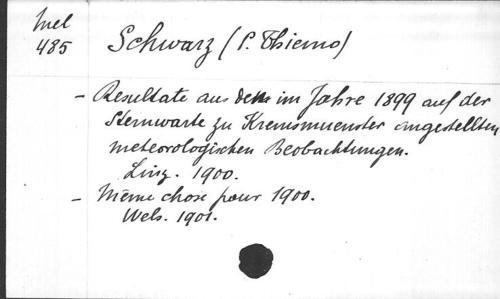 Mel
485
Schwarz (P. Thiemo)
- Resultate aus den im Jahre 1899 auf der
Sternwarte zu Kremsmuenster angestellten
meteorologischen Beobachtungen.
Linz. 1900.
- Même chose pour 1900.
Wels. 1901.